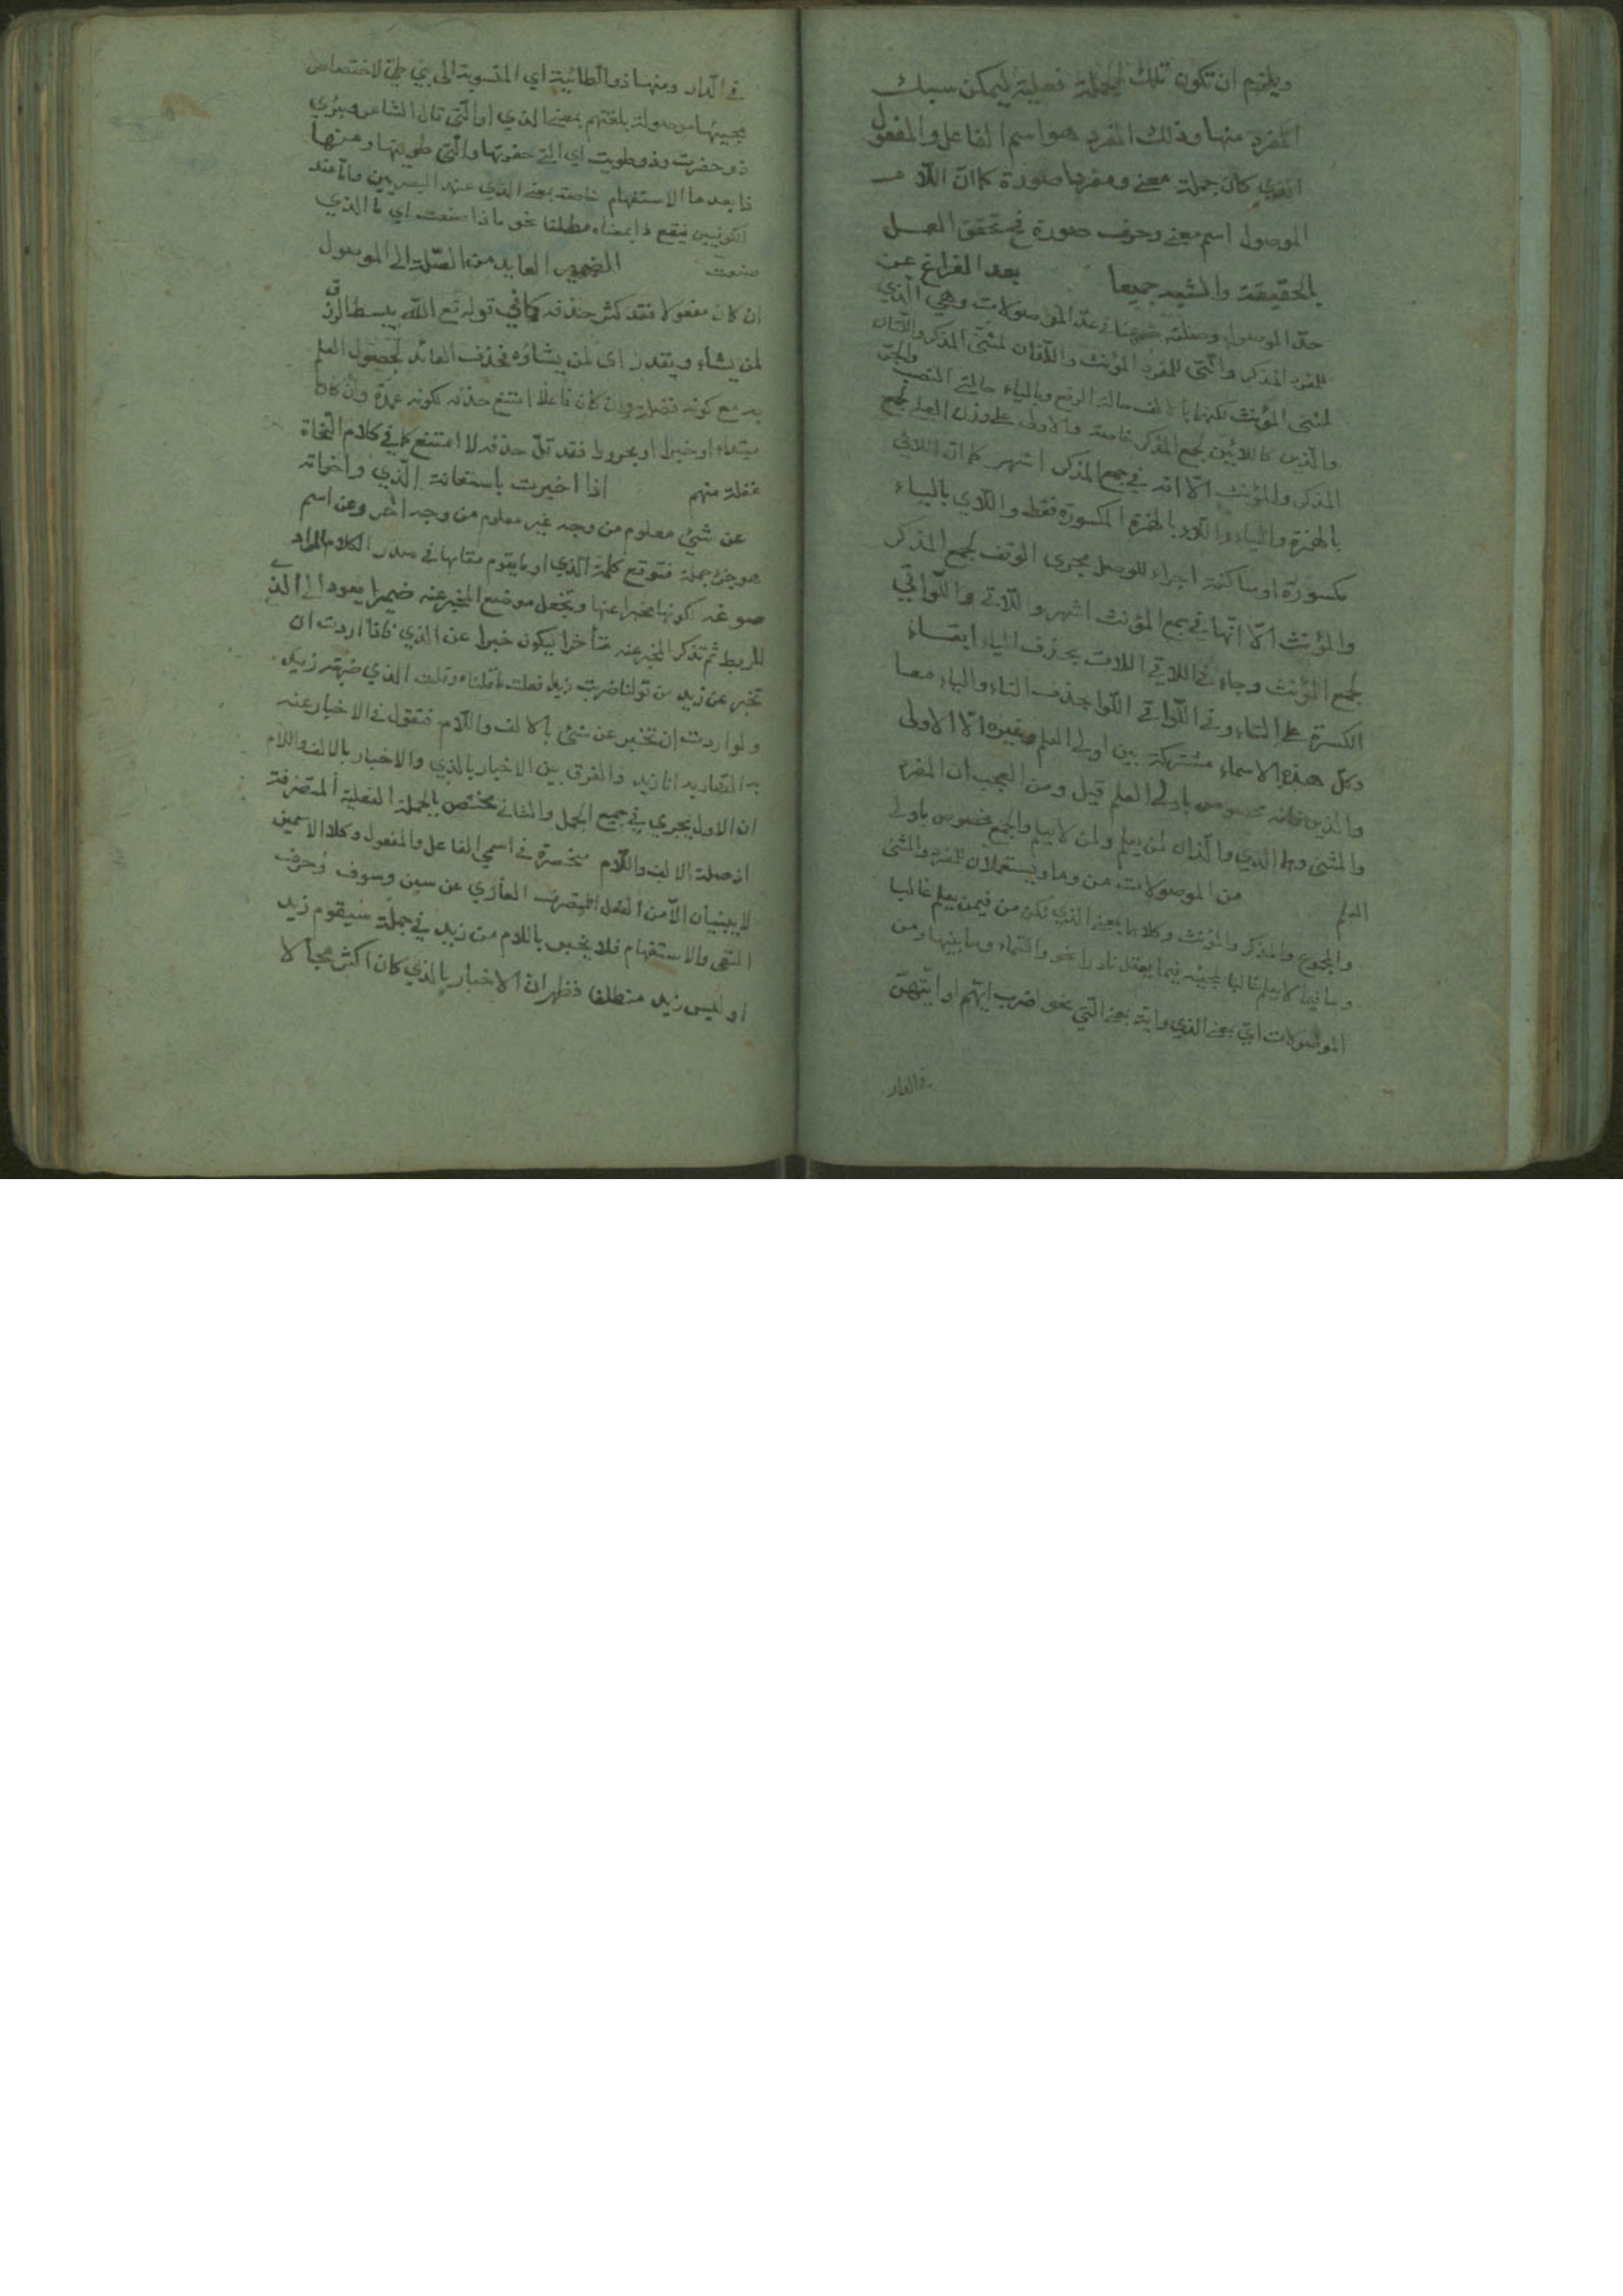 ويلزم ان تكون تلك الجملة فعلية ليمكن سبك
المفرد منها وذلك المفرد هو اسم الفاعل والمفعول
الذي كان جملة معنى ومفردا صورة كما انّ اللام
الموصول اسم معنى وحرف صورة فح تحقق العمل
بالحقيقة والشبه جميعا بعد الفراغ عن
حدّ الموصول وصلته شرعنا في عدّ الموصولات وهي الّذي
للمفرد المذكر والّتي للمفرد المؤنث واللّذان لمثنّى المذكر واللّتان
لمثنى المؤنث لكنهما بالالف حالة الرفع وبالياء حالتي النصب والجرّ
والّذين كاللائين لجمع المذكر خاصة والاولى على وزن العلى لجمع
المذكر والمؤنث الّا انه في جمع المذكر اشهر كما انّ اللائي
بالهمزة والياء واللاء بالهمزة المكسورة فقط واللّاي بالياء
مكسورة او ساكنة اجراء للوصل مجرى الوقف لجمع المذكر
والمؤنث الّا انّها في جمع المؤنث اشهر واللّاتي واللّواتي
لجمع المؤنث وجاء في اللاتي اللات بحذف الياء ابقاء
الكسرة على التاء وفي اللّواتي اللّوا بحذف التاء والياء معا
وكل هذه الاسماء مشتركة بين اولي العلم وغيره الّا الاولى
والذين فانه مخصوص باولي العلم قيل ومن العجب ان المفرد
والمثنى وهما الذي والّذان لمن يعلم ولمن لا يعلم والجمع مخصوص باولي
العلم من الموصولات من وما ويستعملان للمفرد والمثنى
والمجموع والمذكر والمؤنث وكلاهما بمعنى الذي لكن من فيمن يعلم غالبا
وما فيما لا يعلم غالبا لمجيئه فيما يعقل نادرا نحو والسّماء وما بنيها ومن
الموصولات ايّ بمعنى الذي واية بمعنى الّتي نحو اضرب ايّهم او ايّتهنّ
في الدار
في الّدار ومنها ذو الطائيّة اي المنسوبة الى بني طيّ لاختصاص
مجيئها موصولة بلغتهم بمعنى الذي او الّتي قال الشاعر وبئري
ذو حفرت وذو طويت اي الّتي حفرتها والّتي طويتها ومنها
ذا بعد ما الاستفهام خاصة بمعنى الذي عند البصريين وامّا عند
الكوفيين فيقع ذا بمعناه مطلقا نحو ماذا صنعت اي ما الذي
صنعت الضمير العايد من الصّلة الى الموصول
ان كان مفعولا فقد كثر حذفه كما في قوله تع الله يبسط الرزق
لمن يشاء ويقدر اى لمن يشاؤه فحذف العائد لحصول العلم
به مع كونه فضلة وان كان فاعلا امتنع حذفه لكونه عمدة وان كان
مبتداء او خبرا او مجرورا فقد قلّ حذفه لا امتنع كما في كلام النحاة
غفلة منهم اذا اخبرت باستعانة الّذي واخواته
عن شيئ معلوم من وجه غير معلوم من وجه اخر وعن اسم
هو جزء جملة فتوقع كلمة الذي او ما يقوم مقامها في صدر الكلام المراد
صوغه لكونها مخبرا عنها وتجعل موضع المخبر عنه ضميرا يعود الى الذي
للربط ثم تذكر المخبر عنه متأخرا ليكون خبرا عن الذي فاذا اردت ان
تخبر عن زيد من قولنا ضربت زيدا فعلت ما قلناه وقلت الذي ضربته زيد
ولو اردت ان تخبر عن شيئ بالالف واللّام فتقول في الاخبار عنه
به الضاربه انا زيد والفرق بين الاخبار بالذي والاخبار بالالف واللام
ان الاول يجري في جميع الجمل والثاني مختص بالجملة الفعلية المتصرفة
اذ صلة الالف واللّام منحصرة في اسمي الفاعل والمفعول وكلا الاسمين
لا يبنيان الّا من الفعل المتصرف العاري عن سين وسوف وحرف
النفي والاستفهام فلا يخبر باللام من زيد في جملة سيقوم زيد
او ليس زيد منطلقا فظهر انّ الاخبار بالذي كان اكثر مجالا